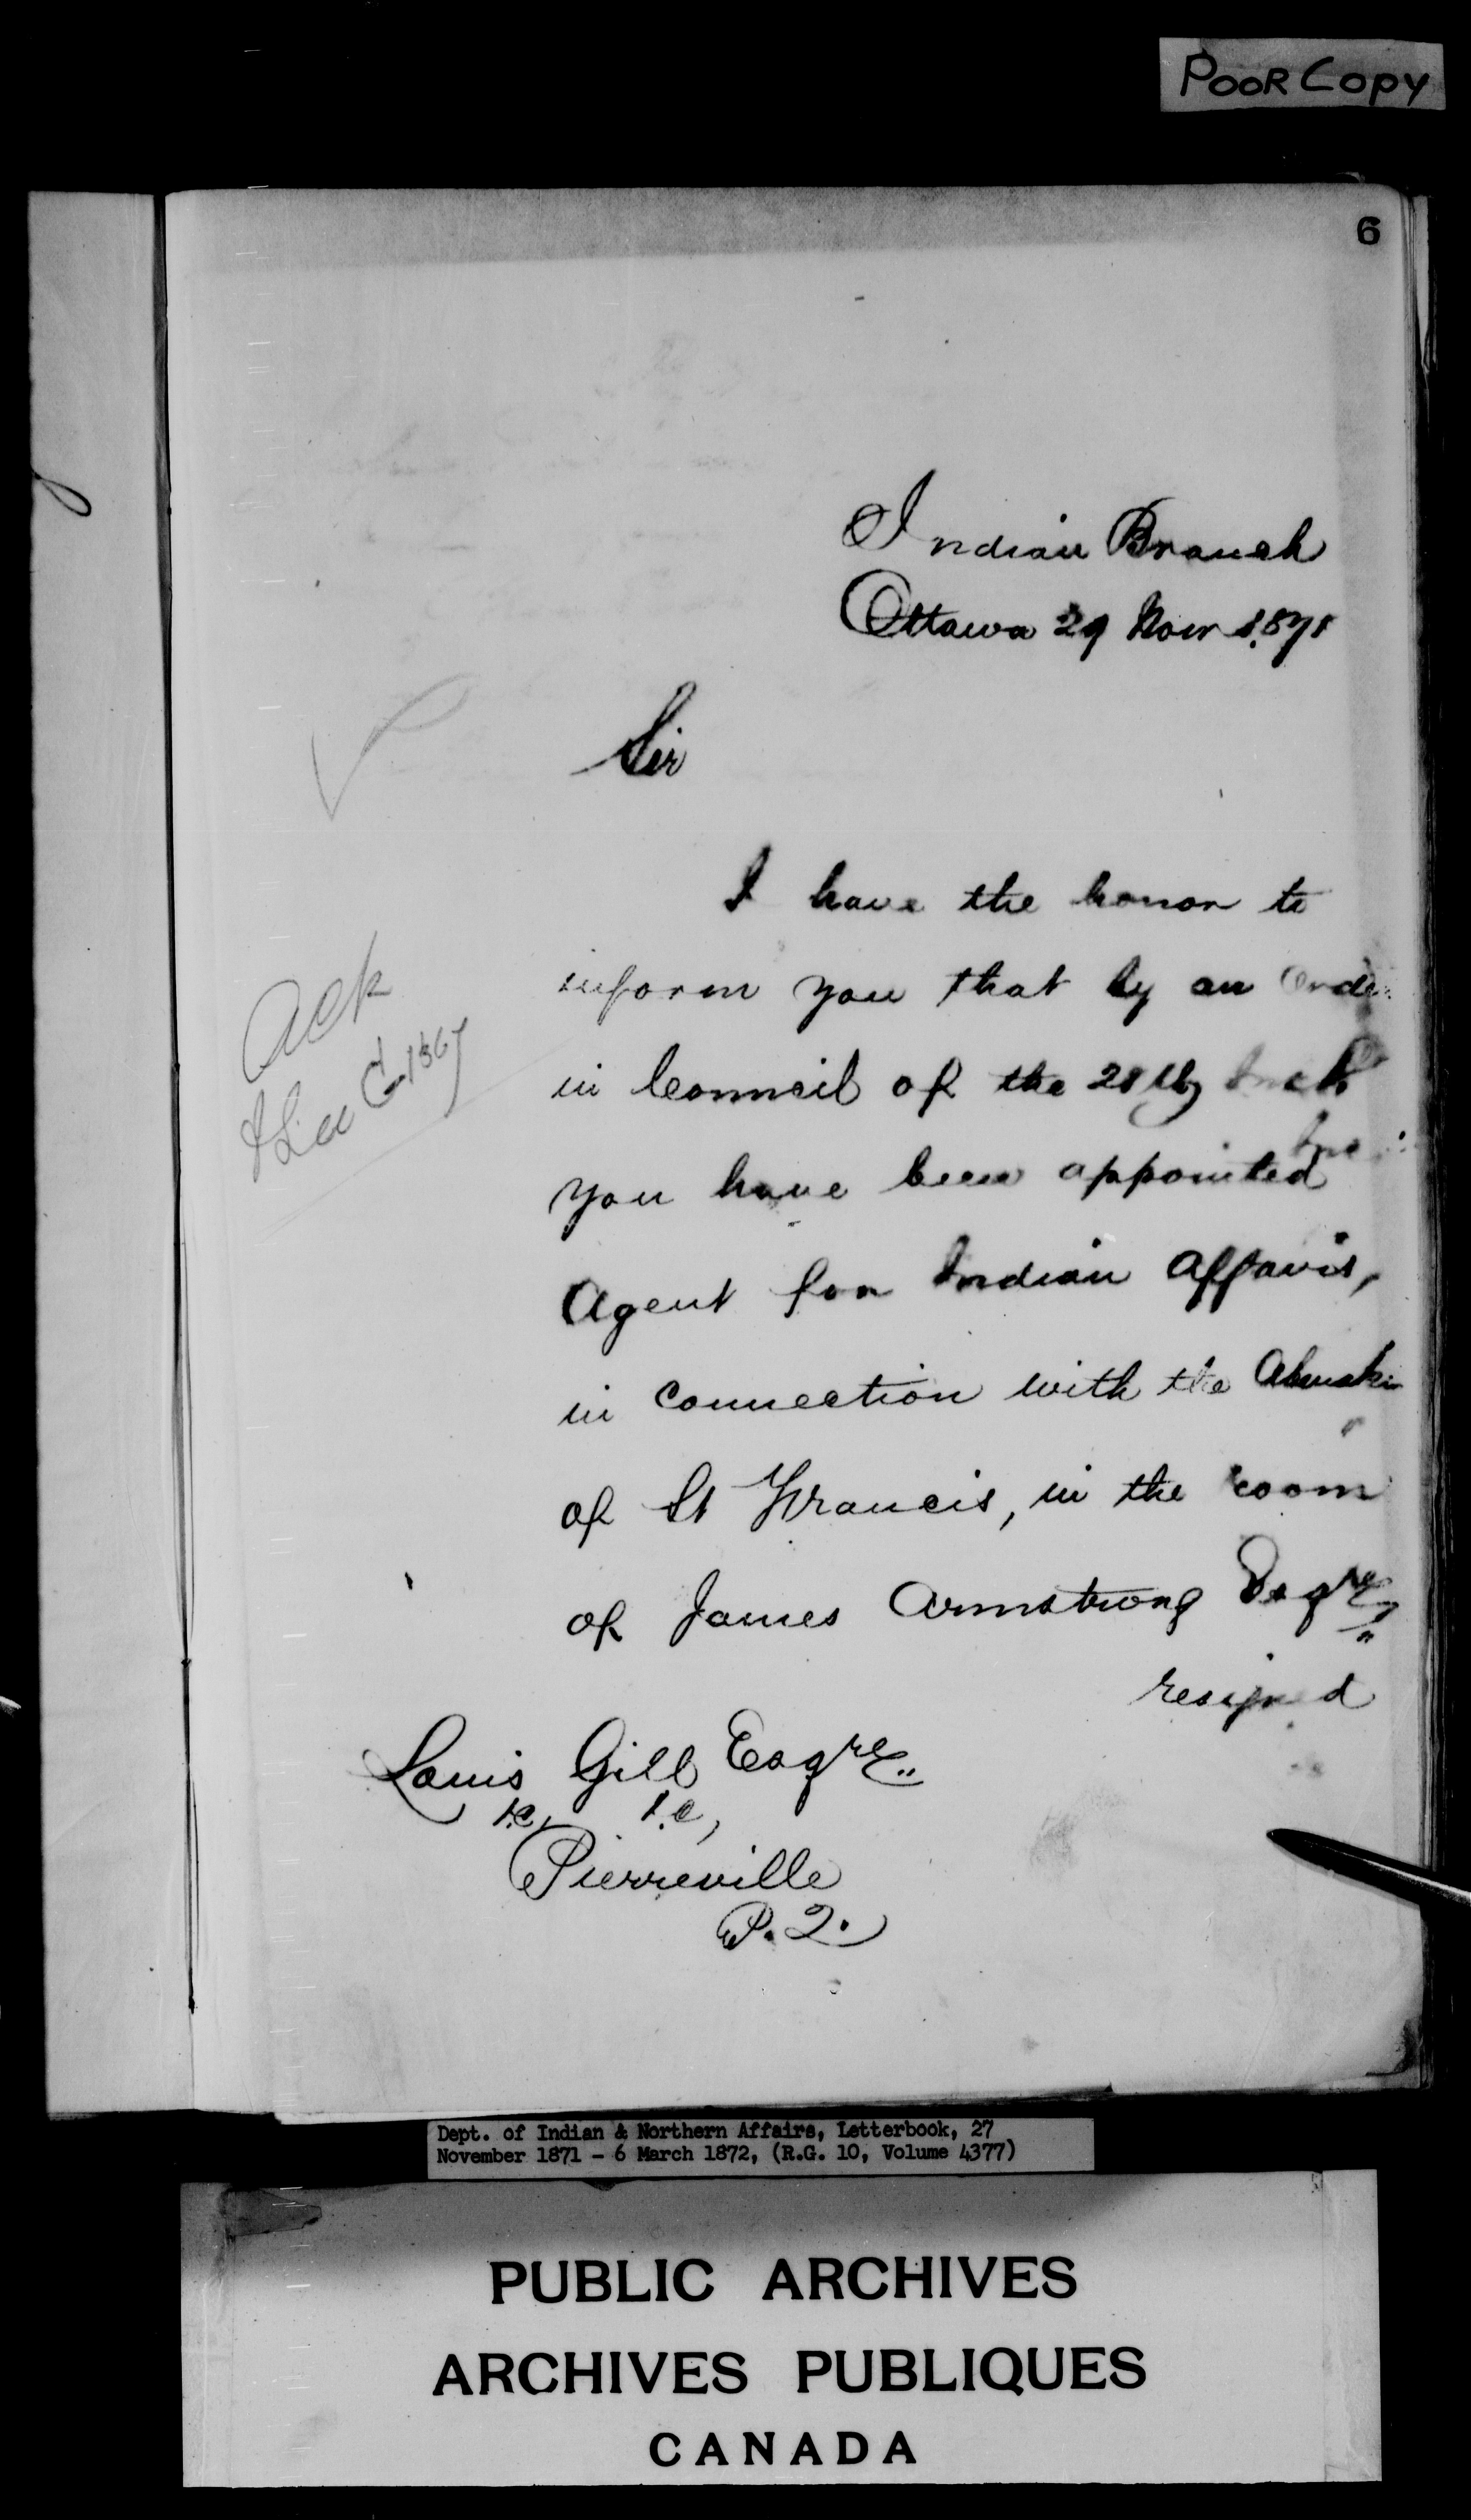 POOR COPY
6
Indian Branch
Ottawa 29 Novr 1871
Sir
I have the honor to
inform you that by an Order
in Council of the 28th
you have been appointed
Agent for Indian Affairs,
in connection with the
of St Francis, in the room
of James Armstrong Esqre
resigned
Ack
Louis Gill Esqre
Pierreville
P. Q.
Dept. of Indian & Northern Affairs, Letterbook, 27
November 1871 - 6 March 1872, (R.G. 10, Volume 4377)
PUBLIC ARCHIVES
ARCHIVES PUBLIQUES
CANADA